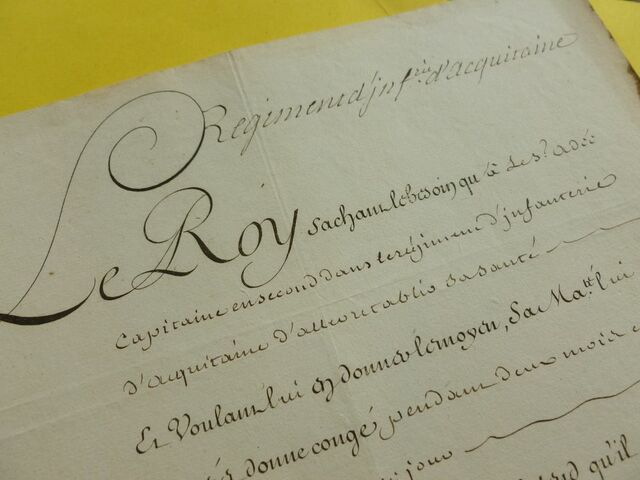 Regiment d'jnf.rie d'acquitaine
Le Roy sachant le besoin qu'a le s.r adée
Capitaine en second dans le régiment d'jnfanterie
d'acquitaine d'aller rétablir sa santé
Et Voulant lui en donner le moyen, Sa Ma.té lui
donne congé pendant deux mois
jour
qu'il